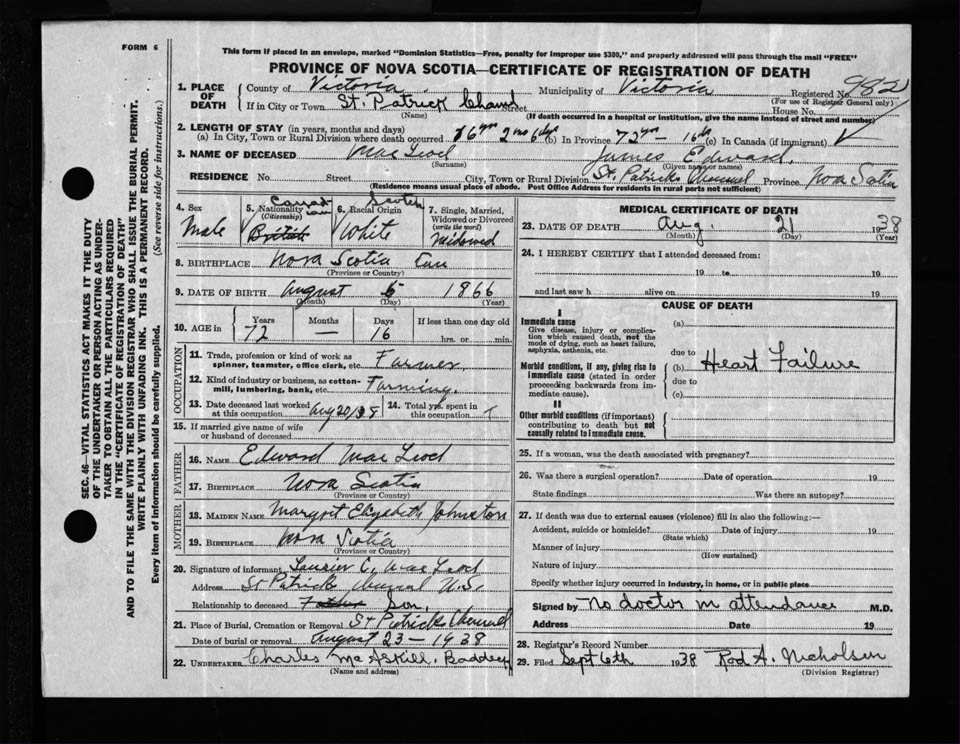 FORM 6
This form if placed in an envelope, marked "Dominion Statistics—Free, penalty for improper use $300," and properly addressed will pass through the mail "FREE"
PROVINCE OF NOVA SCOTIA—CERTIFICATE OF REGISTRATION OF DEATH
1. PLACE OF DEATH
County of Victoria Municipality of Victoria Registered No. 982
(For use of Registrar General only)
If in City or Town St. Patrick Street House No.
(Name) (If death occurred in a hospital or institution, give the name instead of street and number)
2. LENGTH OF STAY (in years, months and days)
(a) In City, Town or Rural Division where death occurred (b) In Province 72 yrs — (c) In Canada (if immigrant)
3. NAME OF DECEASED MacLeod James Edward
(Surname) (Given name or names)
RESIDENCE No. Street City, Town or Rural Division St. Patricks Channel Province Nova Scotia
(Residence means usual place of abode. Post Office Address for residents in rural parts not sufficient)
4. Sex
Male
5. Nationality (Citizenship)
Canadian
British
6. Racial Origin
Scotch
White
7. Single, Married, Widowed or Divorced (write the word)
Widowed
8. BIRTHPLACE Nova Scotia
(Province or Country)
9. DATE OF BIRTH August 5 1866
(Month) (Day) (Year)
10. AGE in Years Months Days If less than one day old
72 — 16 hrs. or min.
OCCUPATION
11. Trade, profession or kind of work as spinner, teamster, office clerk, etc. Farmer,
12. Kind of industry or business, as cotton-mill, lumbering, bank, etc. Farming.
13. Date deceased last worked at this occupation Aug 20/38
14. Total yrs. spent in this occupation
15. If married give name of wife or husband of deceased
FATHER
16. NAME Edward MacLeod
17. BIRTHPLACE Nova Scotia
(Province or Country)
MOTHER
18. MAIDEN NAME Margret Elizabeth Johnston
19. BIRTHPLACE Nova Scotia
(Province or Country)
20. Signature of informant Laurier C. MacLeod
Address St Patricks Channel N.S.
Relationship to deceased Father Son,
21. Place of Burial, Cremation or Removal St Patricks Channel
Date of burial or removal August 23 - 1938
22. UNDERTAKER Charles McAskill, Baddeck
(Name and address)
MEDICAL CERTIFICATE OF DEATH
23. DATE OF DEATH Aug. 21 1938
(Month) (Day) (Year)
24. I HEREBY CERTIFY that I attended deceased from:
19 to 19
and last saw h alive on 19
CAUSE OF DEATH
I
Immediate cause
Give disease, injury or complication which caused death, not the mode of dying, such as heart failure, asphyxia, asthenia, etc.
(a)
due to
Morbid conditions, if any, giving rise to immediate cause (stated in order proceeding backwards from immediate cause).
(b) Heart Failure
due to
(c)
II
Other morbid conditions (if important) contributing to death but not causally related to immediate cause.
25. If a woman, was the death associated with pregnancy?
26. Was there a surgical operation? Date of operation 19
State findings Was there an autopsy?
27. If death was due to external causes (violence) fill in also the following:—
Accident, suicide or homicide? Date of injury 19
(State which)
Manner of injury
(How sustained)
Nature of injury
Specify whether injury occurred in industry, in home, or in public place
Signed by No doctor in attendance M.D.
Address Date 19
28. Registrar's Record Number
29. Filed Sept 6th 1938 Rod A. Nicholson
(Division Registrar)
SEC. 46—VITAL STATISTICS ACT MAKES IT THE DUTY
OF THE UNDERTAKER OR PERSON ACTING AS UNDER-
TAKER TO OBTAIN ALL THE PARTICULARS REQUIRED
IN THE "CERTIFICATE OF REGISTRATION OF DEATH"
AND TO FILE THE SAME WITH THE DIVISION REGISTRAR WHO SHALL ISSUE THE BURIAL PERMIT.
WRITE PLAINLY WITH UNFADING INK. THIS IS A PERMANENT RECORD.
Every item of information should be carefully supplied. (See reverse side for instructions.)